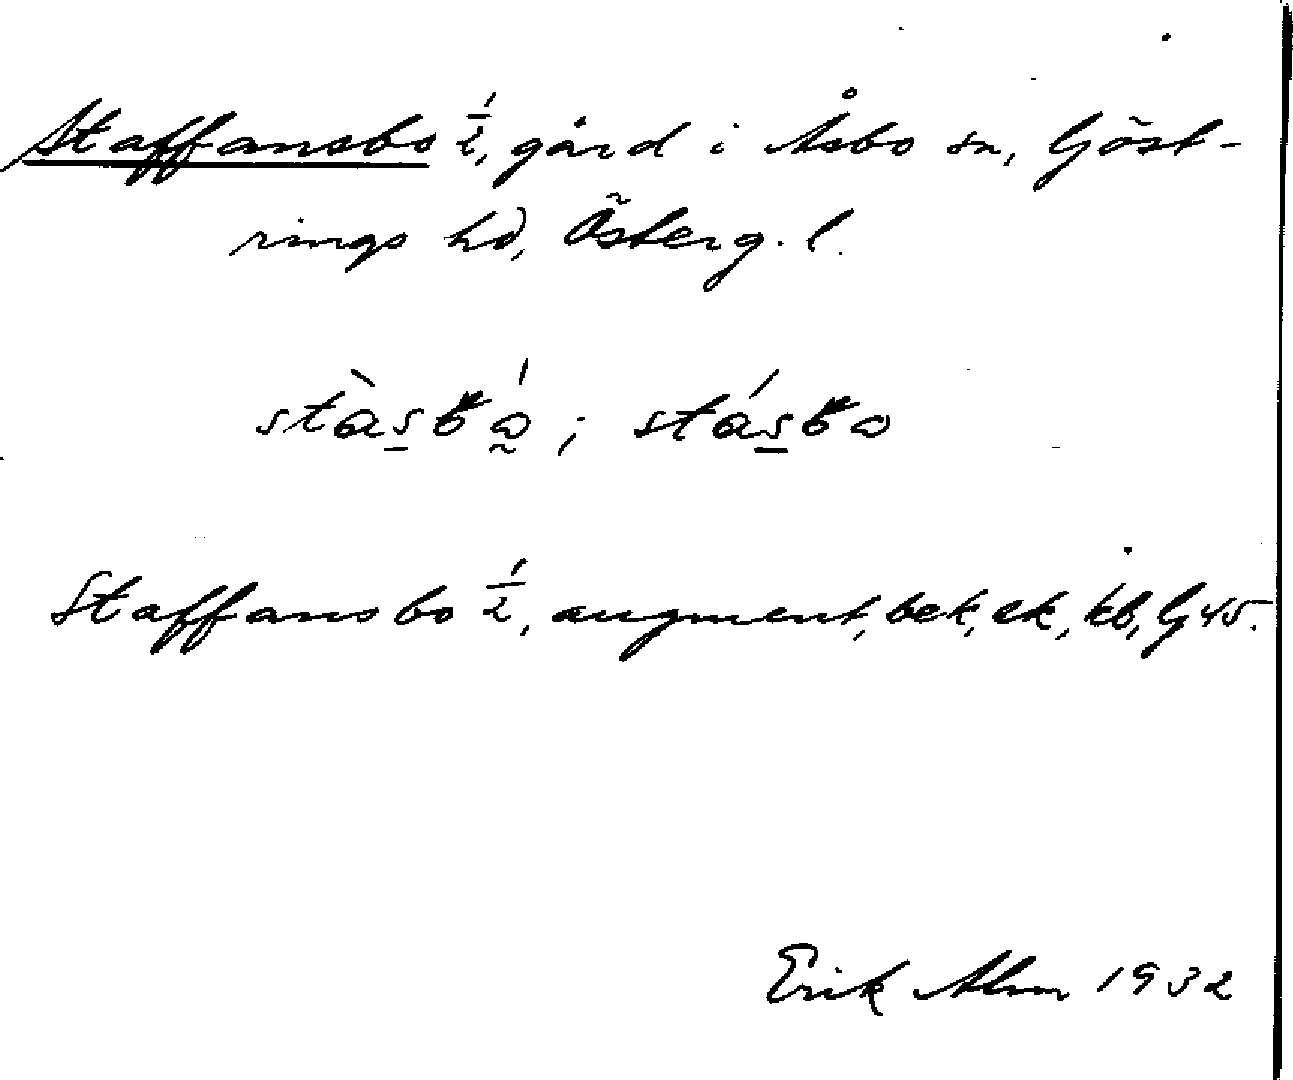 Staffansbo ½, gård i Åsbo sn, Göst-
rings hd, Österg. l.
stàs̲ƀó̰; stás̲ƀo
Staffansbo ½, augment, bek, ek, kb, G 45.
Erik Alm 1932